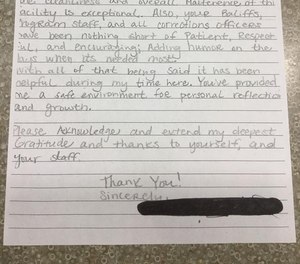 cleanliness and overall Maintenence of the
facility is exceptional. Also, your Bailiffs,
Program Staff, and all corrections officers
have been nothing short of Patient, Respect
ful, and encouraging; Adding humor on the
days when its needed most.
with all of that being said it has been
helpful during my time here. You've provided
me a safe environment for personal reflection
and growth.
Please Acknowledge and extend my deepest
Gratitude and thanks to yourself, and
your staff.
Thank You!
Sincerely,